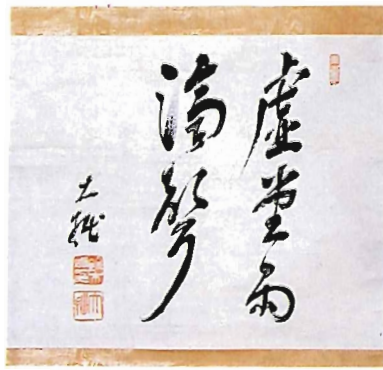 虚堂雨
滴聲
大